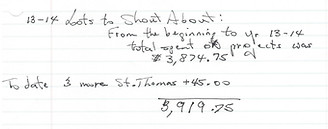 13-14 Lots to Shout About:
From the beginning to yr 13-14
total spent on projects was
$ 3,874.75
To date $ more St. Thomas +45.00
3,919.75